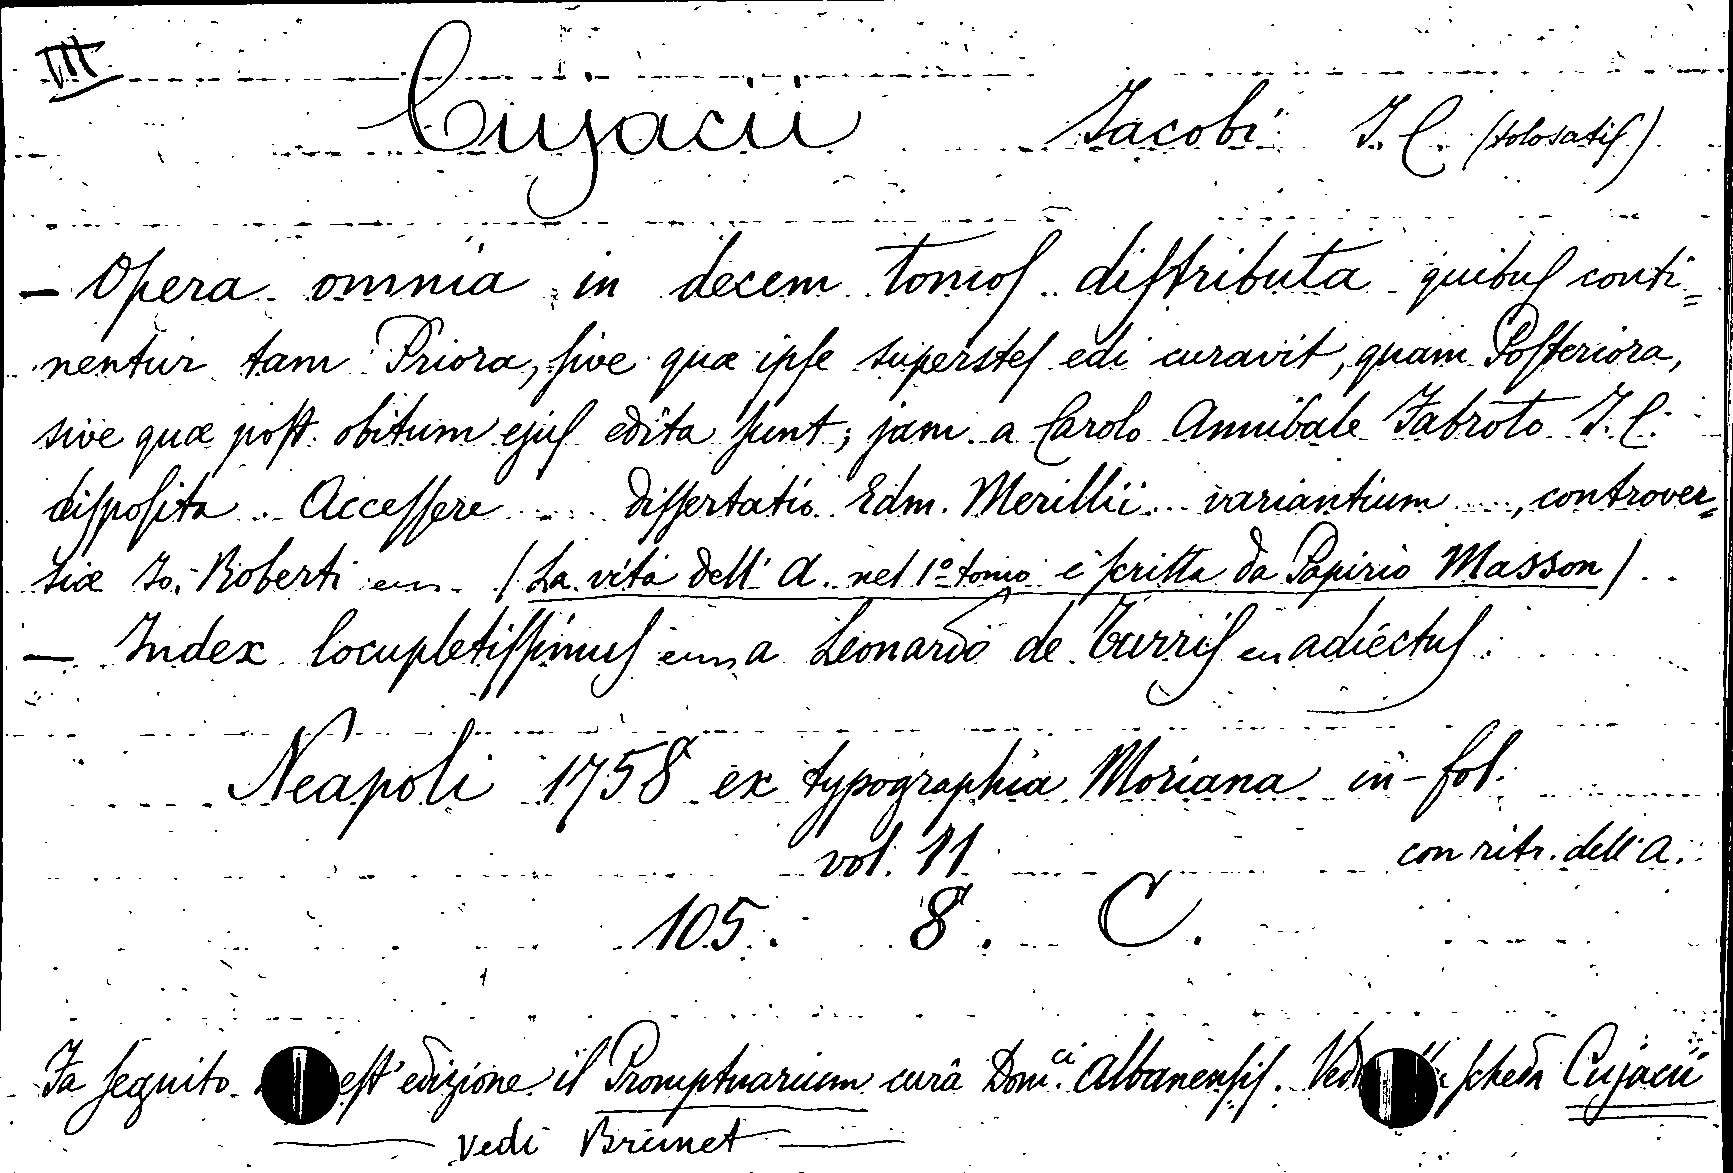 VII
Cujacii Jacobi J. C. (tolosatis)
– Opera omnia in decem tomos distributa quibus conti=
nentur tam Priora, sive quæ ipse superstes edi curavit, quam Posteriora,
sive quæ post obitum ejus edita sunt; jam a Carolo Annibale Fabroto J. C.
disposita. Accessere .... Dissertatio Edm. Merillii... variantium ...., controver=
siæ Jo. Roberti (La vita dell' A. nel 1º tomo è scritta da Papirio Masson)..
– Index locupletissimus a Leonardo de Turris adiectus.
Neapoli 1758 ex typographia Moriana in-fol.
vol. 11 con ritr. dell' A.
105. 8. C.
Fa seguito est' edizione il Promptuarium cura Dom.ci Albanensis. Ved scheda Cujacii
vedi Brunet